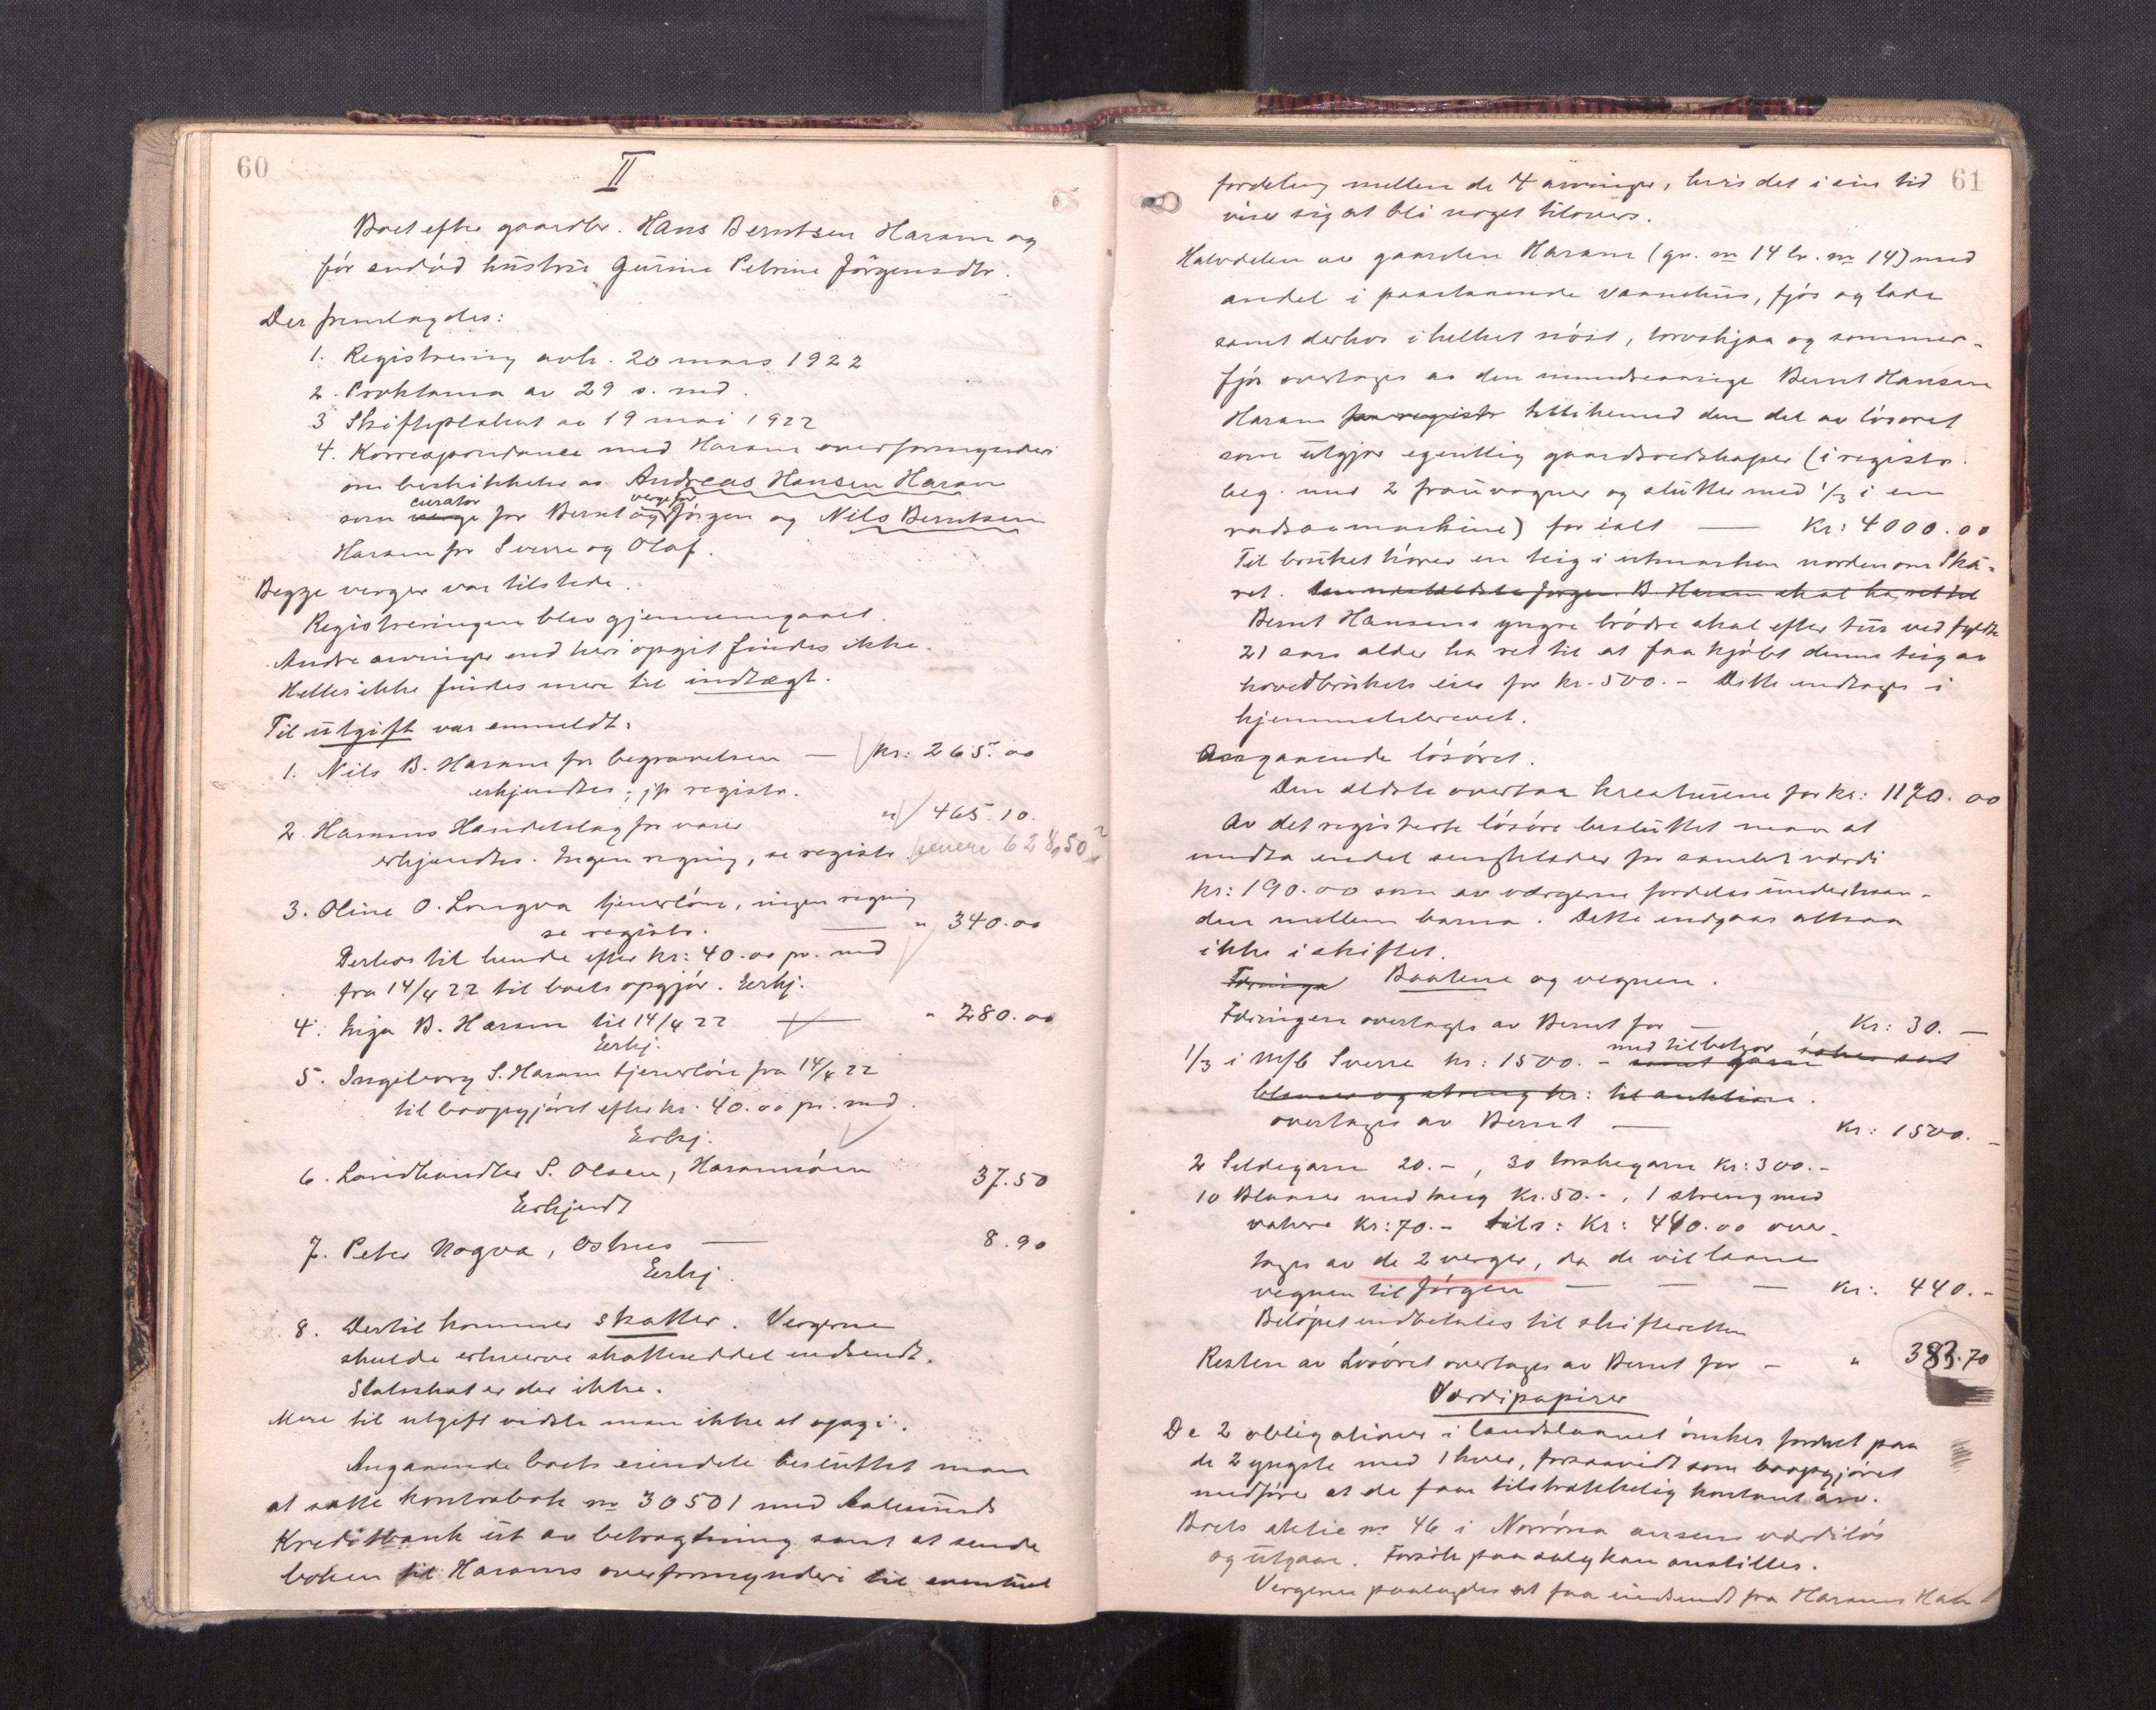 60
II
Boet efter gaardbr. Hans Berntsen Haram og
før avdød hustru Gurine Petrine Jörgensdtr.
Der fremlagdes:
1. Registrering avh. 20 mars 1922
2. Proklama av 29 s. md.
3 Skifteplakat av 19 mai 1922
4. Korrespondance med Haram overformynderi
om beskikkelse av Andreas Hansen Haram
curator verge for
som verge for Bernt og Jörgen og Nils Berntsen
Haram for Sverre og Olaf.
Begge verger var tilstede.
Registreringen blev gjennemgaaet.
Andre arvinger end heri opgit findes ikke.
Heller ikke findes mere til indtægt.
Til utgift var anmeldt:
1. Nils B. Haram for begravelsen — kr: 265.00
erkjendtes; jfr registr.
2. Harams Handelslag for varer " 465.10.
erkjendtes. Ingen regning, se registr. senere 628,50?
3. Oline O. Longva tjenerlön, ingen regning
se registr. — " 340.00
Derhos til hende efter kr: 40.00 pr. md
fra 14/4 22 til boets opgjör. Erkj.
4. Inga B. Haram til 14/4 22 — " 280.00
Erkj.
5. Ingeborg S. Haram tjenerlön fra 14/4 22
til boopgjöret efter kr. 40.00 pr. md.
Erkj.
6. Landhandler S. Olsen, Haramsöen 37.50
Erkjendt
7. Peter Rogva, Ostnes — 8.90
Erkj.
8. Dertil kommer skatter. Vergerne
skulde erhverve skatteseddel indsendt.
Statsskat er der ikke.
Mere til utgift vidste man ikke at opgi.
Angaaende boets eiendele besluttet man
at sætte kontrabok no 30501 med Aalesunds
Kreditbank ut av betragtning samt at sende
boken til Harams overformynderi til eventuel
61
fordeling mellem de 4 arvinger, hvis det i sin tid
viser sig at bli noget tilovers.
Halvdelen av gaarden Haram (gr. no 14 br. no 14) med
andel i paastaaende vaanehus, fjös og lade
samt derhos i helhet nöst, torvskjaa og sommer-
fjös overtages av den mindreaarige Bernt Hansen
Haram for registr tillikemed den del av lösöret
som utgjør egentlig gaardsredskaper (i registr.
beg. med 2 frauvogner og slutter med 1/3 i en
radsaamaskine) for ialt — Kr: 4000.00
Til bruket hörer en teig i utmarken nordenom Skä-
ret. Den næstældste Jørgen B. Haram skal ha ret til
Bernt Hansens yngre brödre skal efter tur ved fyldte
21 aars alder ha ret til at faa kjöbt denne teig av
hovedbrukets eier for kr. 500.- Dette indtages i
hjemmelsbrevet.
Angaaende lösöret.
Den ældste overtar kreaturene for kr: 1170.00
Av det registrerte lösöre besluttet man at
undta endel sengklæder for samlet værdi
kr: 190.00 som av værgerne fordeles underhaan-
den mellem barna. Dette indgaar altsaa
ikke i skiftet.
Færinga Baatene og vegnen.
Færingen overtages av Bernt for — Kr: 30.—
med tilbehør
1/3 i M/b Sverre kr: 1500.- samt garn
blaaser og streng kr: til auktion.
overtages av Bernt — Kr: 1500.—
2 Sildegarn 20.-, 30 torskegarn Kr: 300.-
10 Blaaser med tang Kr. 50.-, 1 streng med
vakere Kr: 70.- tils: Kr: 440.00 over-
tages av de 2 verger, da de vil laane
vegnen til Jörgen — — — Kr: 440.-
Belöpet indbetales til skifteretten
Resten av Lösöret overtages av Bernt for - " 383.70
Værdipapirer
De 2 obligationer i landslaanet önskes fordelt paa
de 2 yngste med 1 hver, forsaavidt som boopgjöret
medförer at de faar tilstrækkelig kontant arv.
Boets aktie no 46 i Norröna ansees værdilös
og utgaar. Forsök paa salg kan anstilles.
Vergerne paalagdes at faa indsendt fra Harams Han